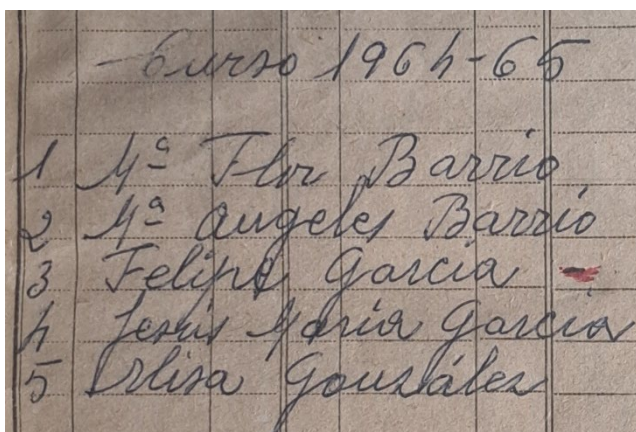 Curso 1964-65
1 Mª Flor Barrio
2 Mª Angeles Barrio
3 Felipe García -
4 Jesús María García
5 Elisa González